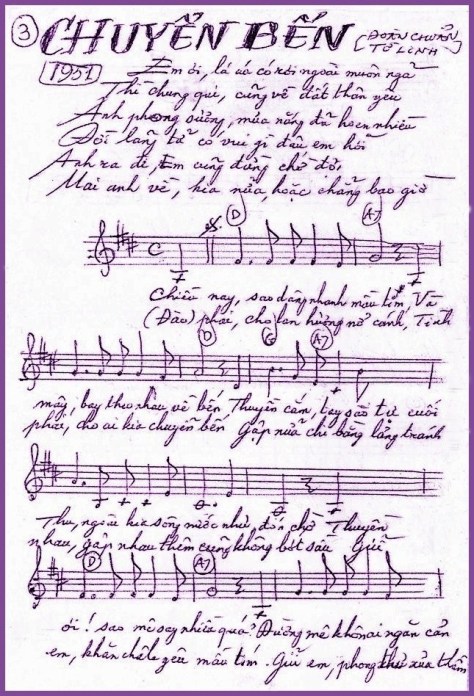 ③ CHUYỂN BẾN (ĐOÀN CHUẨN
TỪ LINH)
1951
Em ơi, lá úa có rơi ngoài muôn ngả
Thì chung qui, cũng về đất thân yêu
Anh phong sương, mưa nắng đã hoen nhiều
Đời lãng tử có vui gì đâu em hỡi
Anh ra đi, Em cũng đừng chờ đợi
Mai anh về, kia nữa, hoặc chẳng bao giờ
D A7
C
Chiều nay, sao dâng nhanh màu tím, Và
(Đào) phai, cho lan hương nở cánh, Tình
D G A7
mây, bay theo nhau về bến Thuyền cắm, tay sào từ cuối
phiếu, cho ai kia chuyển bến Gặp nữa chi bằng lảng tránh
Thu, ngoài kia sông nước như đợi chờ Thuyền
nhau, gặp nhau thêm cũng không bớt sầu Giữ
D A7
ơi! sao mê say nhiều quá? Đường mê không ai ngăn cản
em, khăn chêle yêu màu tím. Giữ em, phong thư xưa thắm